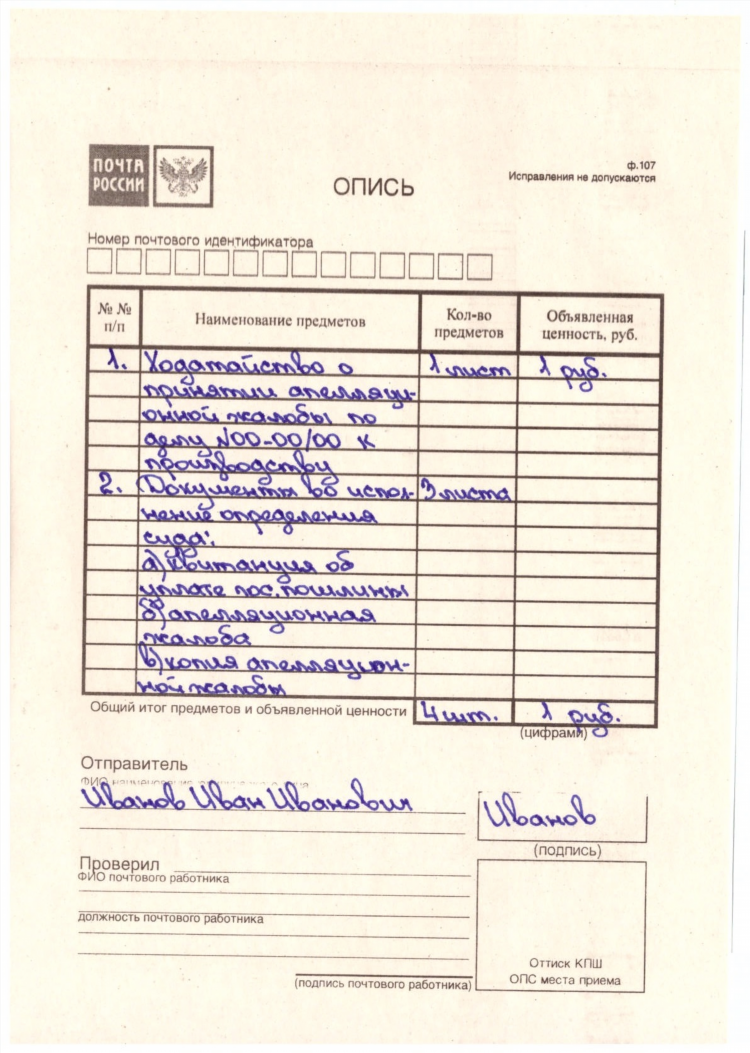 ПОЧТА
РОССИИ
ф.107
Исправления не допускаются
ОПИСЬ
Номер почтового идентификатора
№ № п/п
Наименование предметов
Кол-во предметов
Объявленная ценность, руб.
1. Ходатайство о 1 лист 1 руб.
принятии апелляци-
онной жалобы по
делу №00-00/00 к
производству
2. Документы во испол- 3 листа
нение определения
суда:
а) квитанция об
уплате гос. пошлины
б) апелляционная
жалоба
в) копия апелляцион-
ной жалобы
Общий итог предметов и объявленной ценности 4 шт. 1 руб.
(цифрами)
Отправитель
ФИО
Иванов Иван Иванович
Иванов
(подпись)
Проверил
ФИО почтового работника
должность почтового работника
Оттиск КПШ
ОПС места приема
(подпись почтового работника)